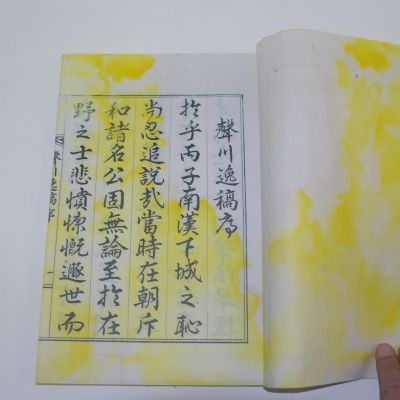 聲川逸稿序
於乎丙子南漢下城之恥
尚忍追說㢤當時在朝斥
和諸名公固無論至於在
野之士悲憤慷慨遯世而
聲川逸稿序
一